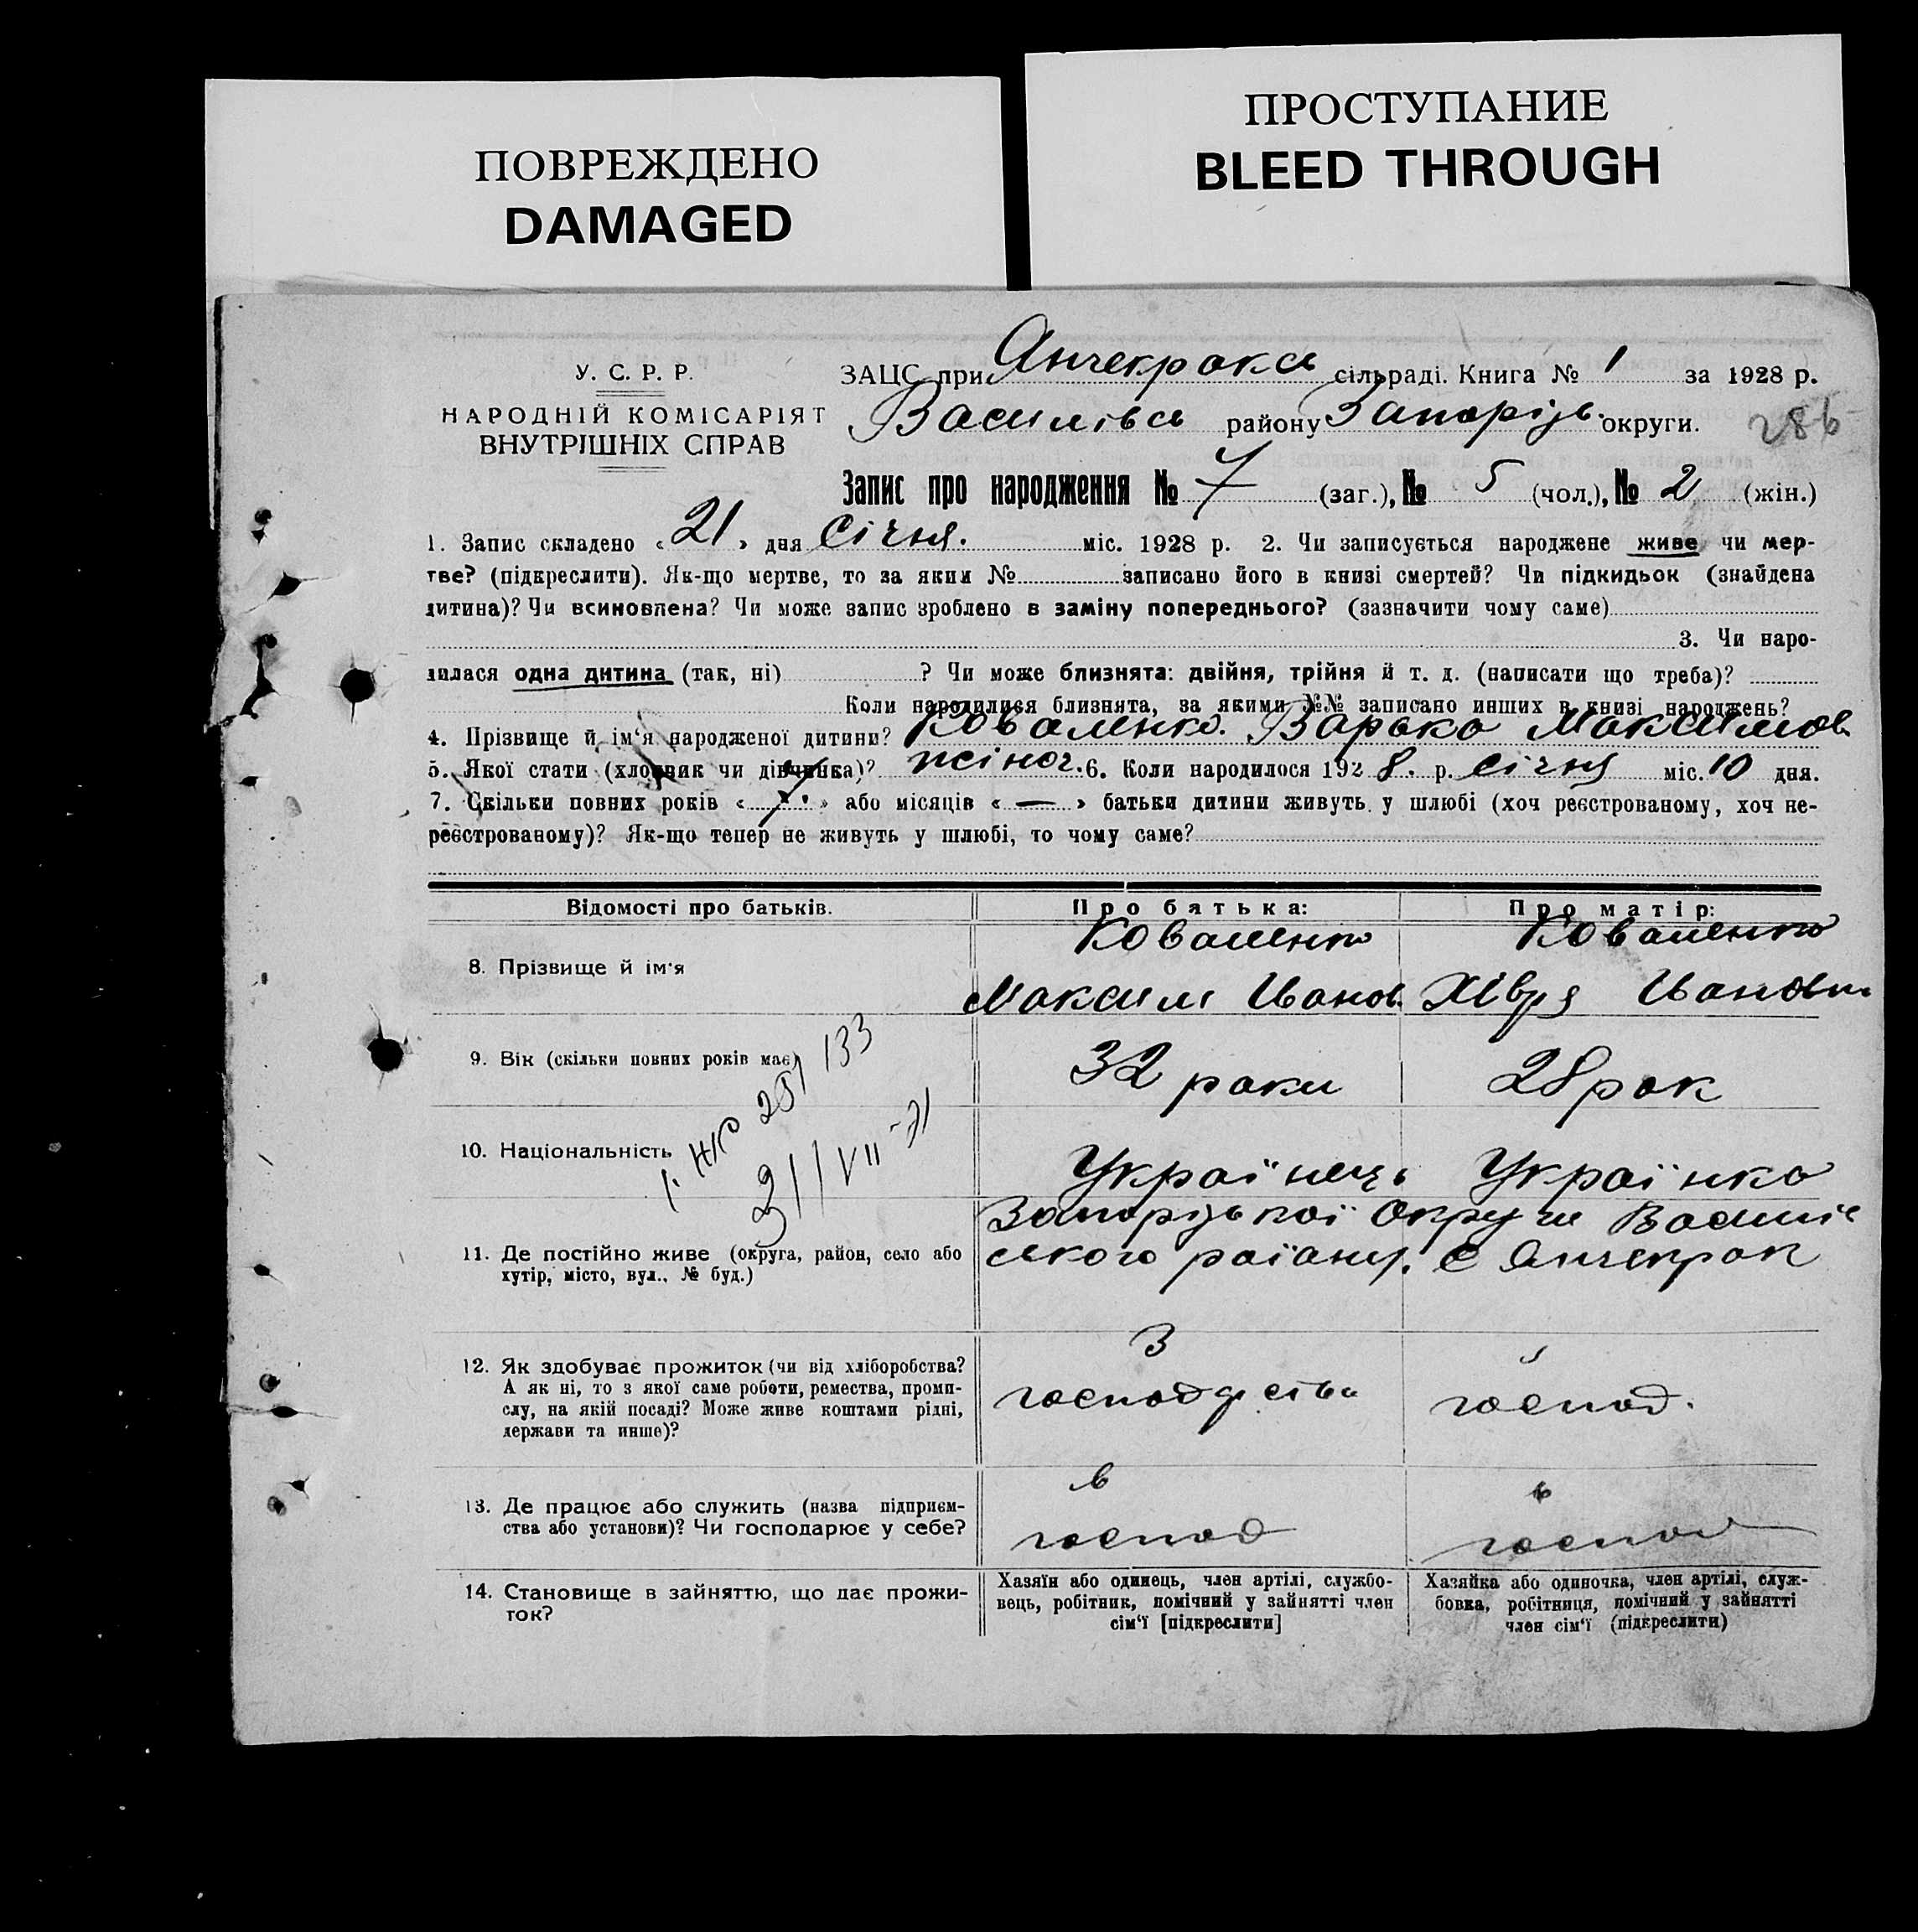 ПОВРЕЖДЕНО
DAMAGED
ПРОСТУПАНИЕ
BLEED THROUGH
У. С. Р. Р.
НАРОДНІЙ КОМІСАРІЯТ
ВНУТРІШНІХ СПРАВ
ЗАЦС при Янчекрокс сільраді. Книга № 1 за 1928 р.
Василівсь району Запорізь. округи.
286
Запис про народження № 7 (заг.), № 5 (чол.), № 2 (жін.)
1. Запис складено « 21 » дня Січня. міс. 1928 р. 2. Чи записується народжене живе чи мер-
тве? (підкреслити). Як-що мертве, то за яким № записано його в книзі смертей? Чи підкидьок (знайдена
дитина)? Чи всиновлена? Чи може запис зроблено в заміну попереднього? (зазначити чому саме)
3. Чи наро-
дилася одна дитина (так, ні) ? Чи може близнята: двійня, трійня й т. д. (написати що треба)?
Коли народилися близнята, за якими №№ записано инших в книзі народжень?
4. Прізвище й ім‘я народженої дитини? Коваленко. Варька Максимов
5. Якої стати (хлопчик чи дівчинка)? жіноч. 6. Коли народилося 1928. р. січня міс. 10 дня.
7. Скільки повних років « 7 » або місяців « — » батьки дитини живуть у шлюбі (хоч реєстрованому, хоч не-
реєстрованому)? Як-що тепер не живуть у шлюбі, то чому саме?
Відомості про батьків. Про батька: Про матір:
8. Прізвище й ім‘я
Коваленко
Максим Иванов.
Коваленко
Хівря Ивановн
9. Вік (скільки повних років має)
32 роки
28 рок
133
10. Національність
Українець
Українка
11. Де постійно живе (округа, район, село або
хутір, місто, вул., № буд.)
Запорізької Округи Василів
ського раіону. с Янчекрак
12. Як здобуває прожиток (чи від хліборобства?
А як ні, то з якої саме роботи, ремества, проми-
слу, на якій посаді? Може живе коштами рідні,
держави та инше)?
З
господарства
господ.
13. Де працює або служить (назва підприєм-
ства або установи)? Чи господарює у себе?
в
господ
в
господ
14. Становище в зайняттю, що дає прожи-
ток?
Хазяїн або одинець, член артілі, службо-
вець, робітник, помічний у зайнятті член
сім‘ї [підкреслити]
Хазяйка або одиночка, член артілі, служ-
бовка, робітниця, помічний у зайнятті
член сім‘ї (підкреслити)